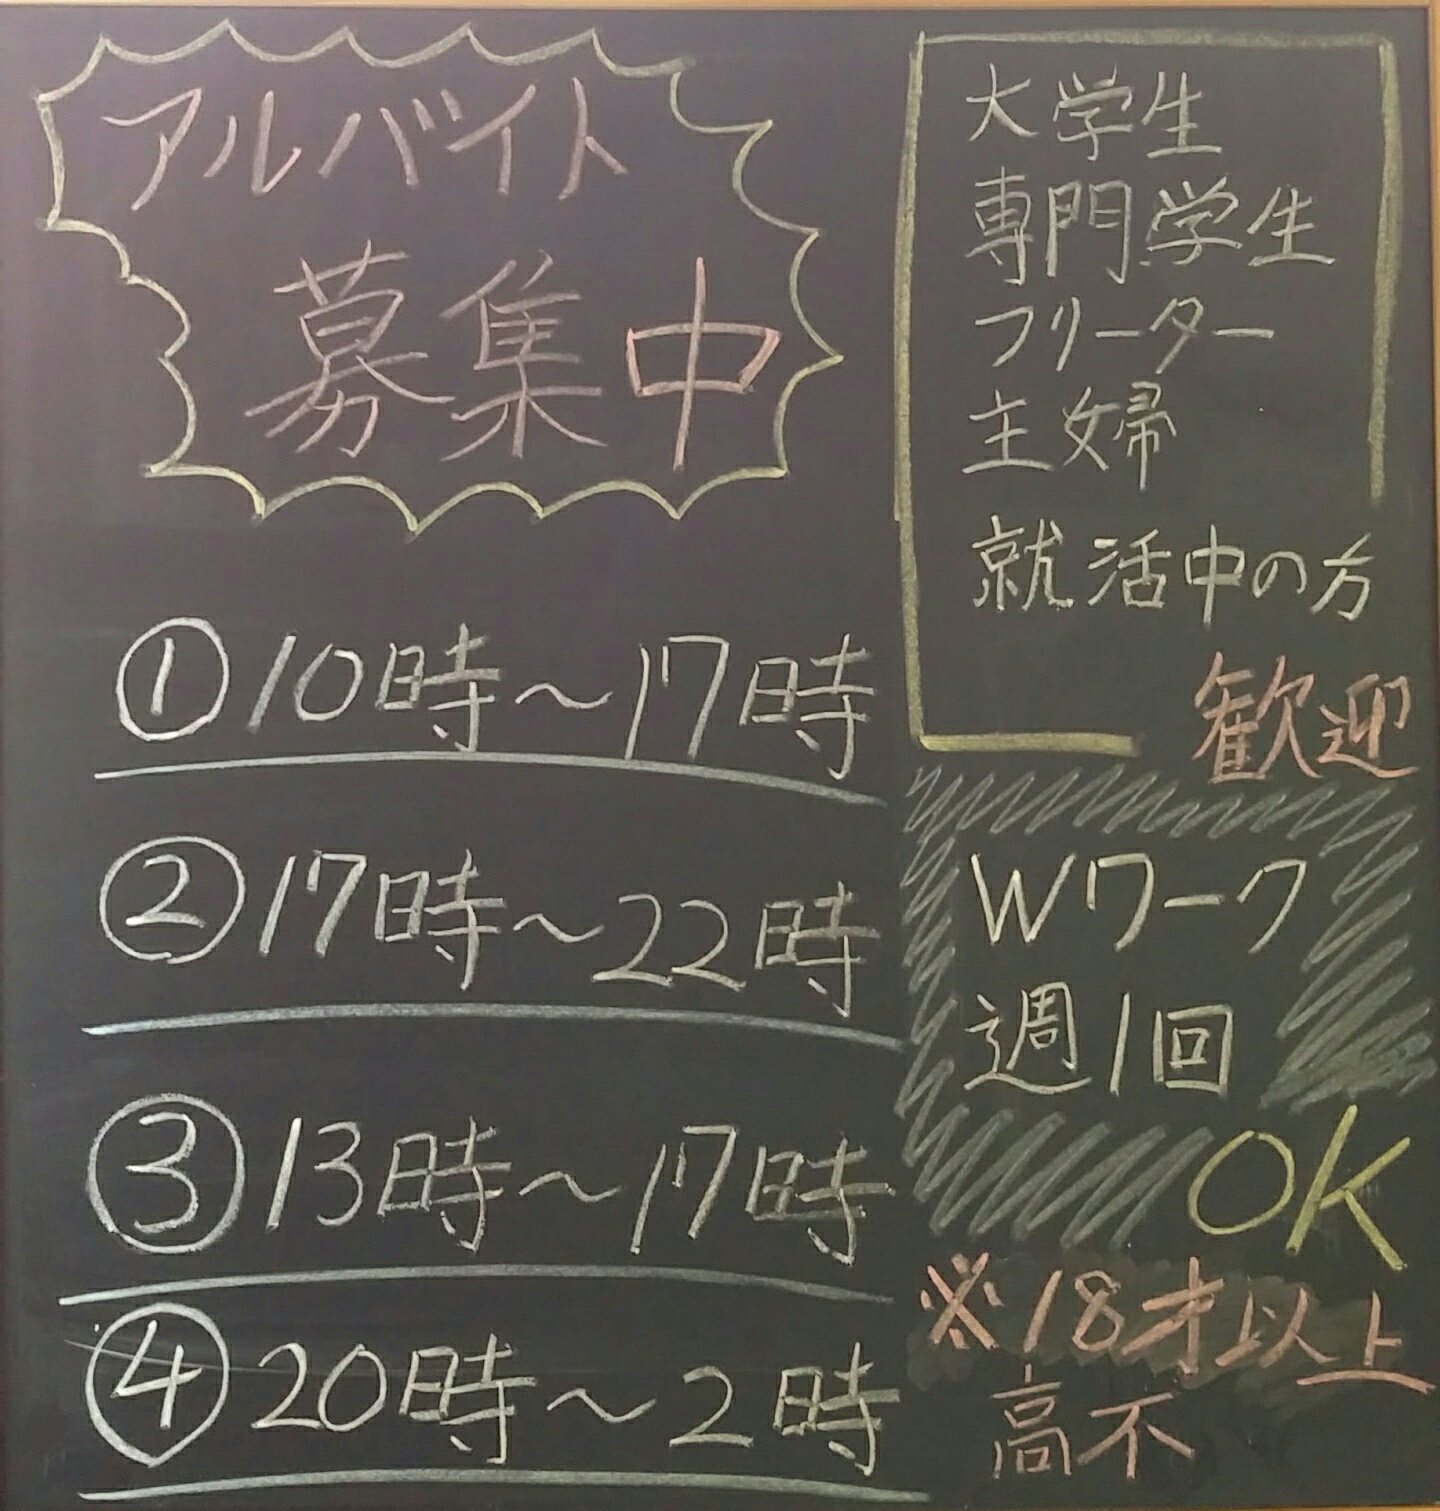 アルバイト
募集中
①10時～17時
②17時～22時
③13時～17時
④20時～2時
大学生
専門学生
フリーター
主婦
就活中の方
歓迎
Wワーク
週1回
OK
※18才以上
高不